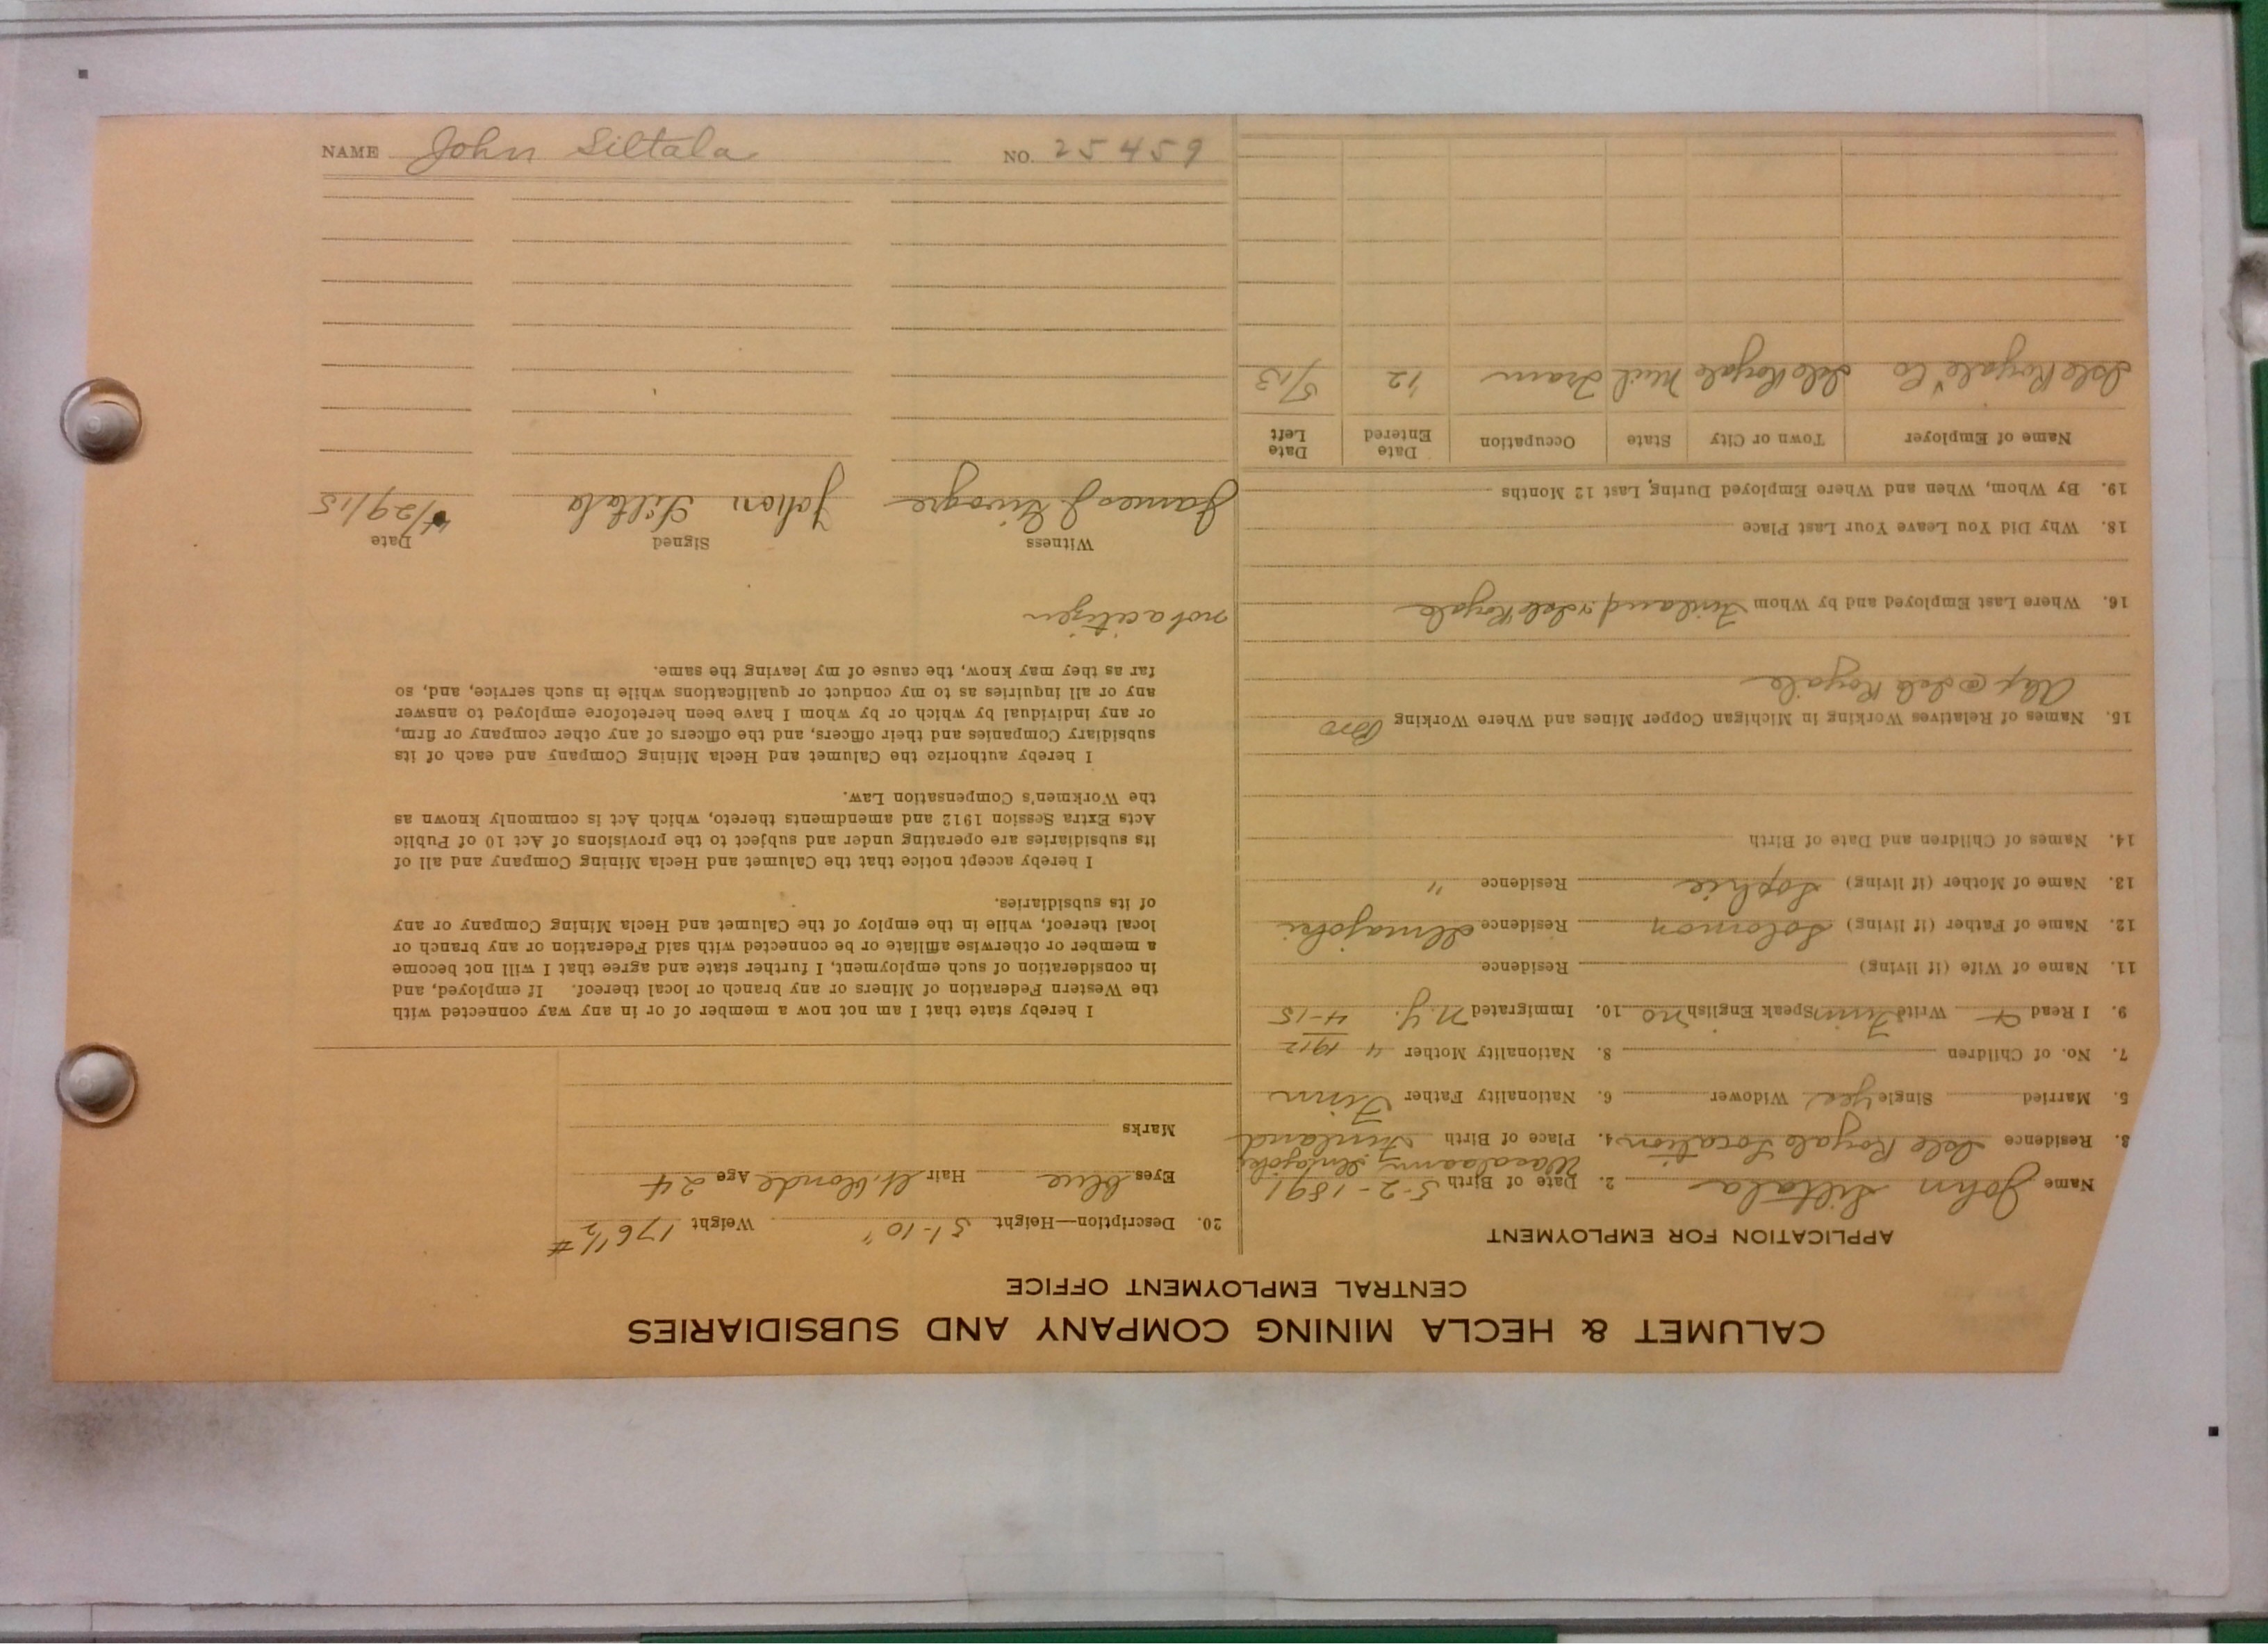 CALUMET & HECLA MINING COMPANY AND SUBSIDIARIES
CENTRAL EMPLOYMENT OFFICE
APPLICATION FOR EMPLOYMENT
Name John Siltala 2. Date of Birth 5-2-1891
3. Residence Isle Royale Location 4. Place of Birth Finland
5. Married Single Yes Widower 6. Nationality Father Finn
7. No. of Children 8. Nationality Mother " 4 1912
9. I Read & Write Finn Speak English no 10. Immigrated N.Y. 4-15
11. Name of Wife (if living) Residence
12. Name of Father (if living) Solomon Residence Ilmajoki
13. Name of Mother (if living) Sophie Residence "
14. Names of Children and Date of Birth
15. Names of Relatives Working in Michigan Copper Mines and Where Working Bro
Alex @ Isle Royale
16. Where Last Employed and by Whom Finland & Isle Royale
18. Why Did You Leave Your Last Place
19. By Whom, When and Where Employed During Last 12 Months
Name of Employer Town or City State Occupation Date Entered Date Left
Isle Royale Co Isle Royale Mich Tram 12 5/13
20. Description—Height 5'-10" Weight 176 1/2 #
Eyes blue Hair lt. blonde Age 24
Marks
I hereby state that I am not now a member of or in any way connected with
the Western Federation of Miners or any branch or local thereof. If employed, and
in consideration of such employment, I further state and agree that I will not become
a member or otherwise affiliate or be connected with said Federation or any branch or
local thereof, while in the employ of the Calumet and Hecla Mining Company or any
of its subsidiaries.
I hereby accept notice that the Calumet and Hecla Mining Company and all of
its subsidiaries are operating under and subject to the provisions of Act 10 of Public
Acts Extra Session 1912 and amendments thereto, which Act is commonly known as
the Workmen's Compensation Law.
I hereby authorize the Calumet and Hecla Mining Company and each of its
subsidiary Companies and their officers, and the officers of any other company or firm,
or any individual by which or by whom I have been heretofore employed to answer
any or all inquiries as to my conduct or qualifications while in such service, and, so
far as they may know, the cause of my leaving the same.
not a citizen
Witness Signed Date
James J. Johan Siltala 4/29/15
NAME John Siltala NO. 25459